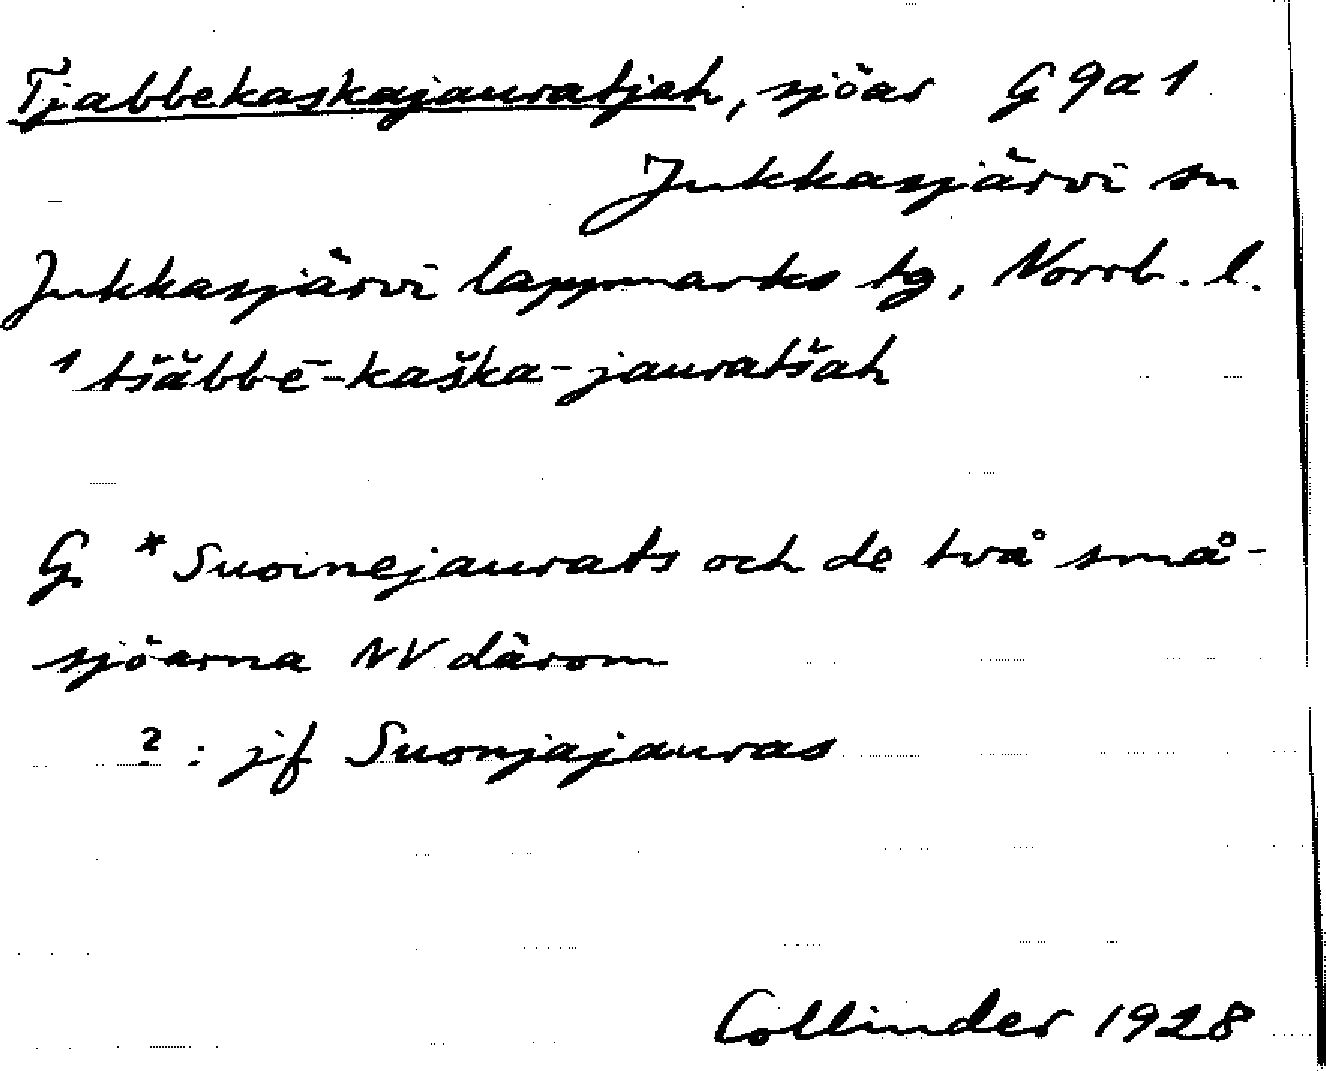 Tjabbekaskajauratjah, sjöar G 9 a 1
Jukkasjärvi sn
Jukkasjärvi lappmarks tg, Norrb. l.
1 tšăbbē-kaška-jauratšah
G. *Suoinejaurats och de två små-
sjöarna NV därom
2 : jf Suonjajauras
Collinder 1928